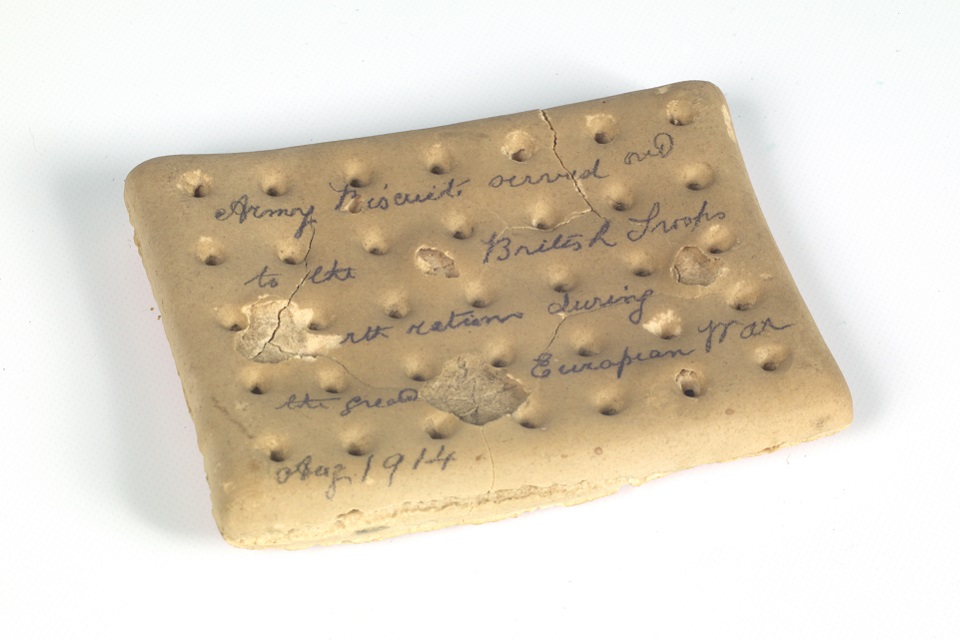 Army Biscuits served out
to the British Troops
rth rations during
the great European War
Aug 1914